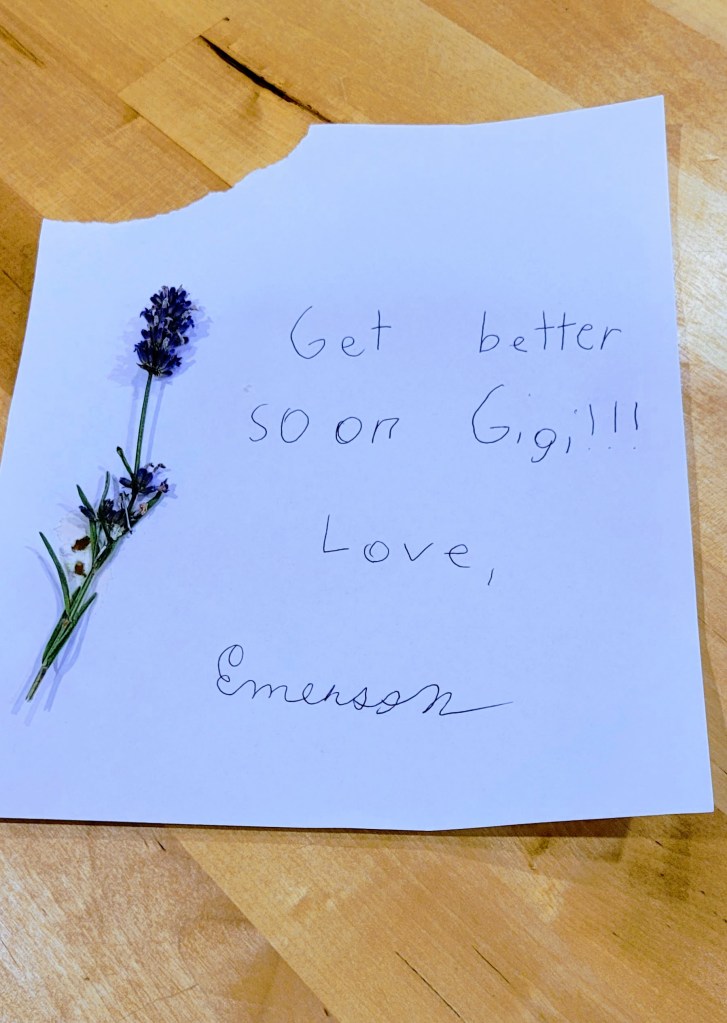 Get better
soon Gigi!!!
Love,
Emerson